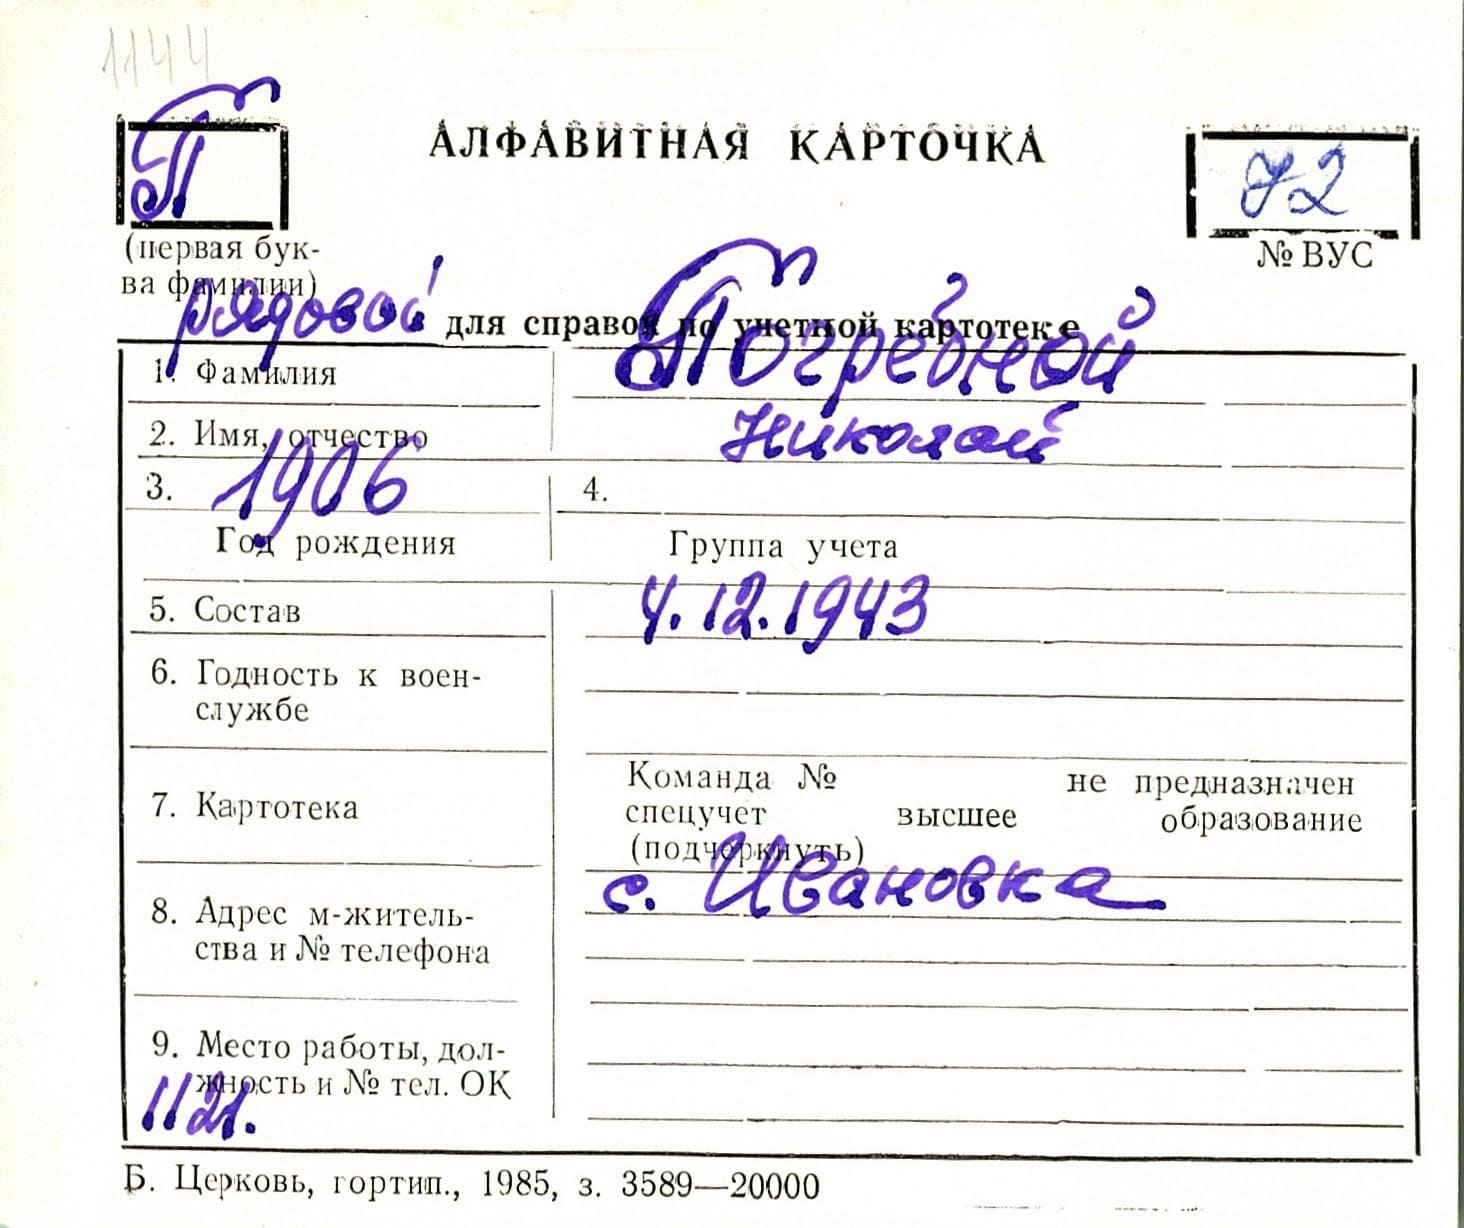 1144
П
АЛФАВИТНАЯ КАРТОЧКА
72
(первая бук-
ва фамилии)
№ ВУС
рядовой
для справок по учетной картотеке
1. Фамилия
Погребной
2. Имя, отчество
Николай
3. 1906
4.
Год рождения
Группа учета
5. Состав
4.12.1943
6. Годность к воен-
службе
7. Картотека
Команда № не предназначен
спецучет высшее образование
(подчеркнуть)
8. Адрес м-житель-
ства и № телефона
с. Ивановка
9. Место работы, дол-
жность и № тел. ОК
1121.
Б. Церковь, гортип., 1985, з. 3589—20000